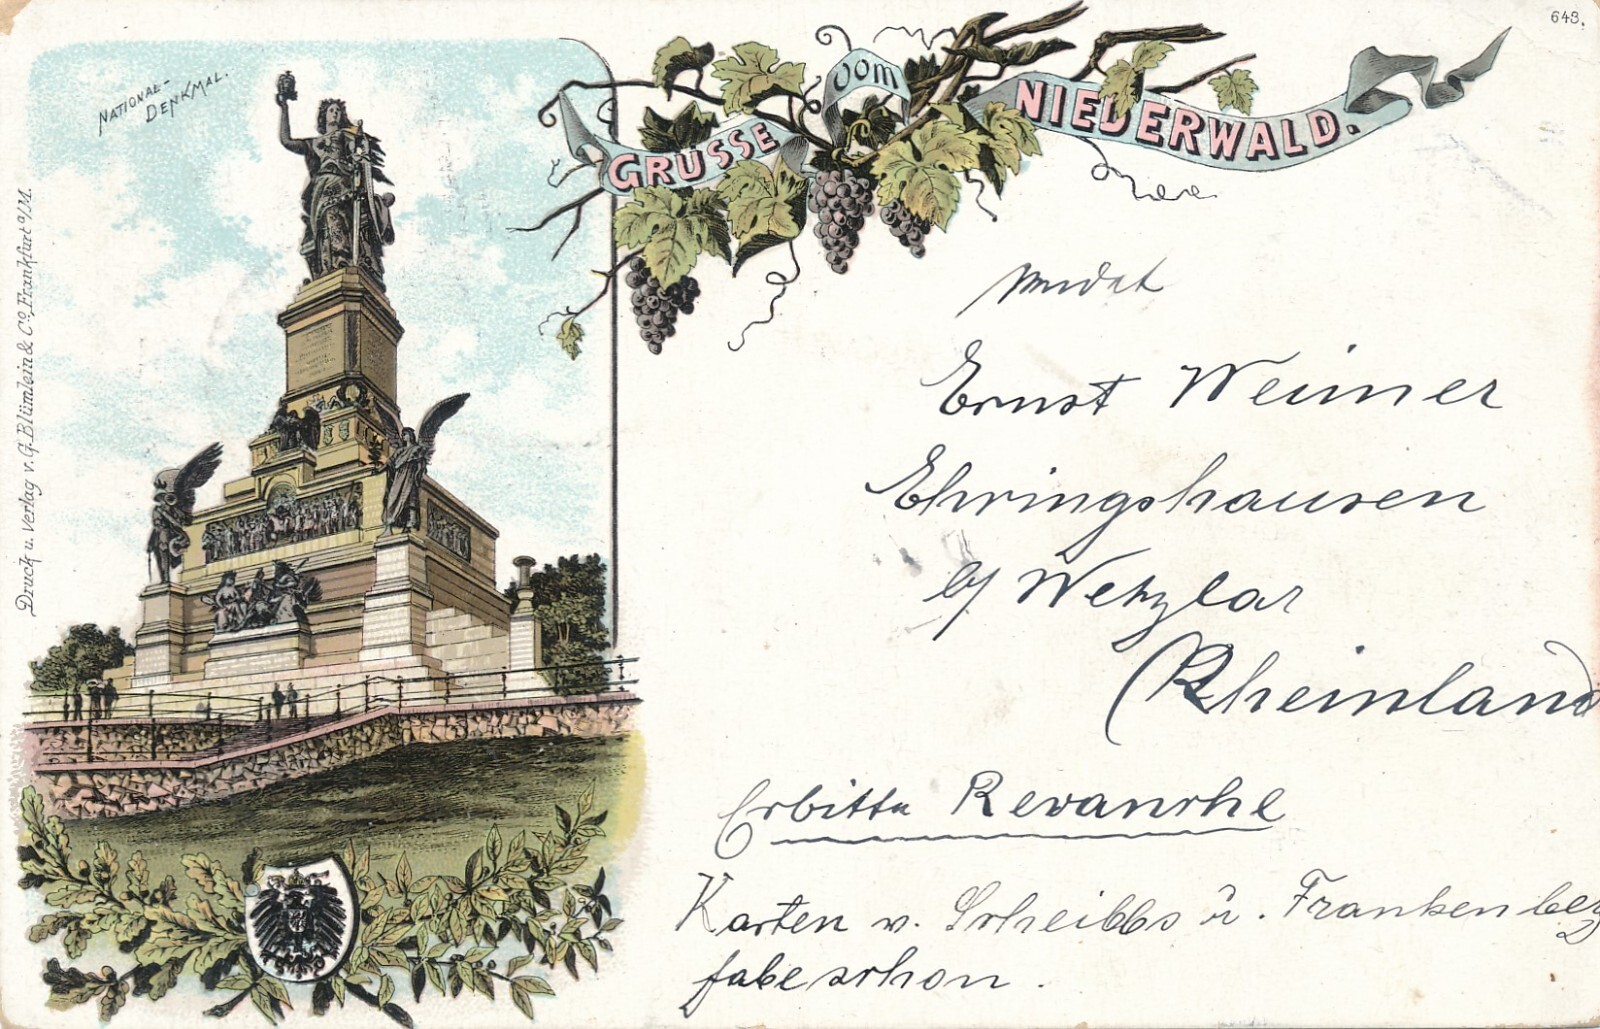 643.
NATIONAL-
DENKMAL.
GRÜSSE vom NIEDERWALD.
Druck u. Verlag v. G. Blümlein & Co. Frankfurt a/M.
sendet
Ernst Weimer
Ehringshausen
b/ Wetzlar
(Rheinland)
Erbitte Revanche
Karten v. Scheibbs u. Frankenberg
habe schon.